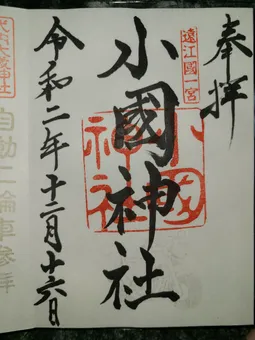 奉拝
遠江國一宮
小國神社
小國神社
令和二年十二月十六日
式内大蔵神社
自動二輪車参拝